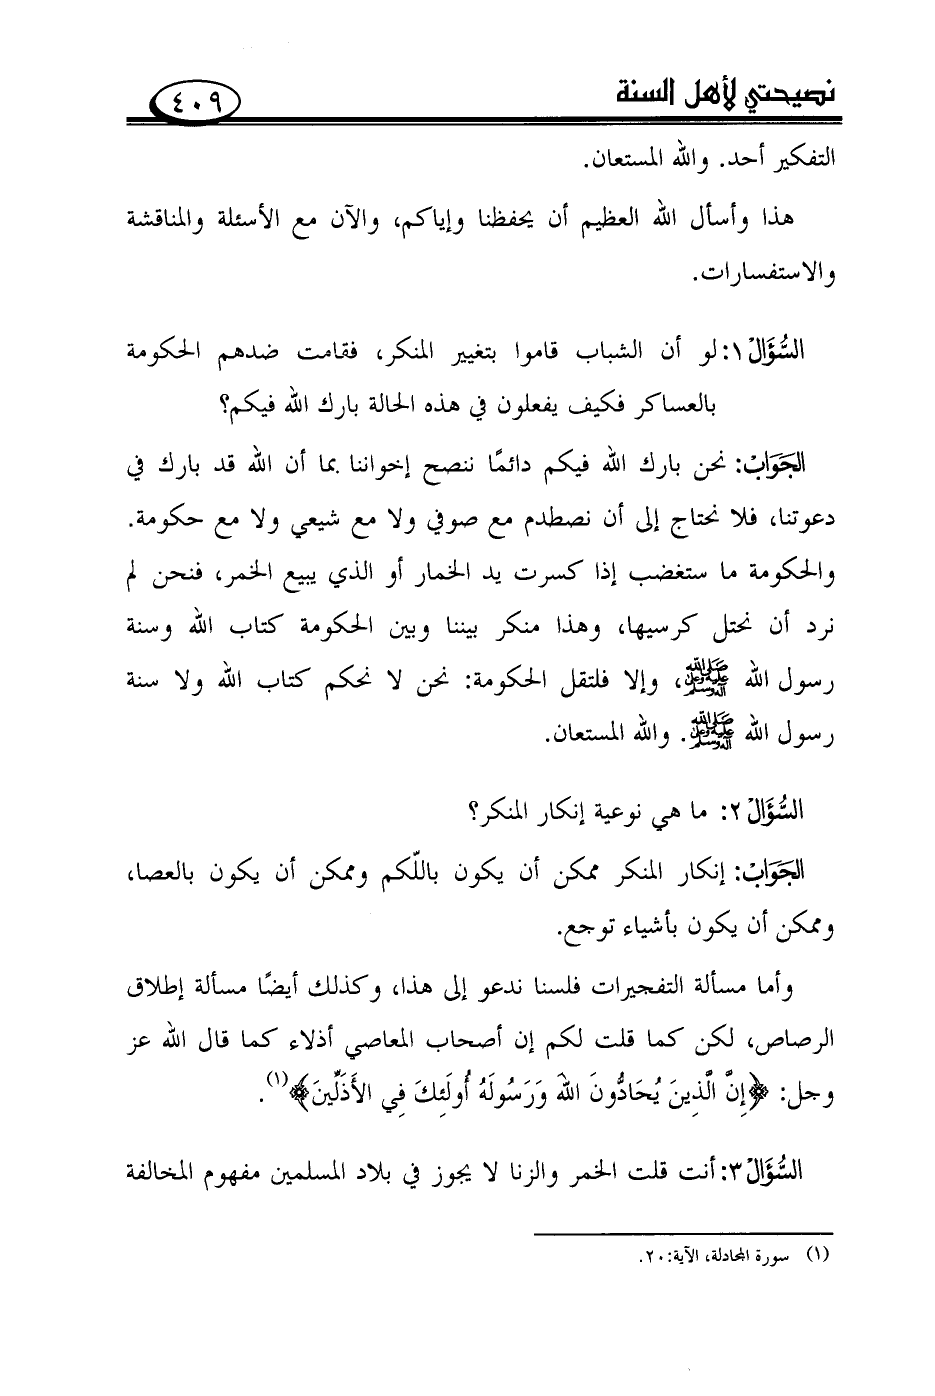 نصيحتي لأهل السنة ٤٠٩
التفكير أحد. والله المستعان.
هذا وأسأل الله العظيم أن يحفظنا وإياكم، والآن مع الأسئلة والمناقشة
والاستفسارات.
السُّؤَالُ ١: لو أن الشباب قاموا بتغيير المنكر، فقامت ضدهم الحكومة
بالعساكر فكيف يفعلون في هذه الحالة بارك الله فيكم؟
الجَوَابُ: نحن بارك الله فيكم دائمًا ننصح إخواننا بما أن الله قد بارك في
دعوتنا، فلا نحتاج إلى أن نصطدم مع صوفي ولا مع شيعي ولا مع حكومة.
والحكومة ما ستغضب إذا كسرت يد الخمار أو الذي يبيع الخمر، فنحن لم
نرد أن نحتل كرسيها، وهذا منكر بيننا وبين الحكومة كتاب الله وسنة
رسول الله ﷺ، وإلا فلتقل الحكومة: نحن لا نحكم كتاب الله ولا سنة
رسول الله ﷺ. والله المستعان.
السُّؤَالُ ٢: ما هي نوعية إنكار المنكر؟
الجَوَابُ: إنكار المنكر ممكن أن يكون باللّكم وممكن أن يكون بالعصا،
وممكن أن يكون بأشياء توجع.
وأما مسألة التفجيرات فلسنا ندعو إلى هذا، وكذلك أيضًا مسألة إطلاق
الرصاص، لكن كما قلت لكم إن أصحاب المعاصي أذلاء كما قال الله عز
وجل: ﴿إِنَّ الَّذِينَ يُحَادُّونَ اللهَ وَرَسُولَهُ أُولَئِكَ فِي الأَذَلِّينَ﴾(١).
السُّؤَالُ ٣: أنت قلت الخمر والزنا لا يجوز في بلاد المسلمين مفهوم المخالفة
(١) سورة المجادلة، الآية: ٢٠.